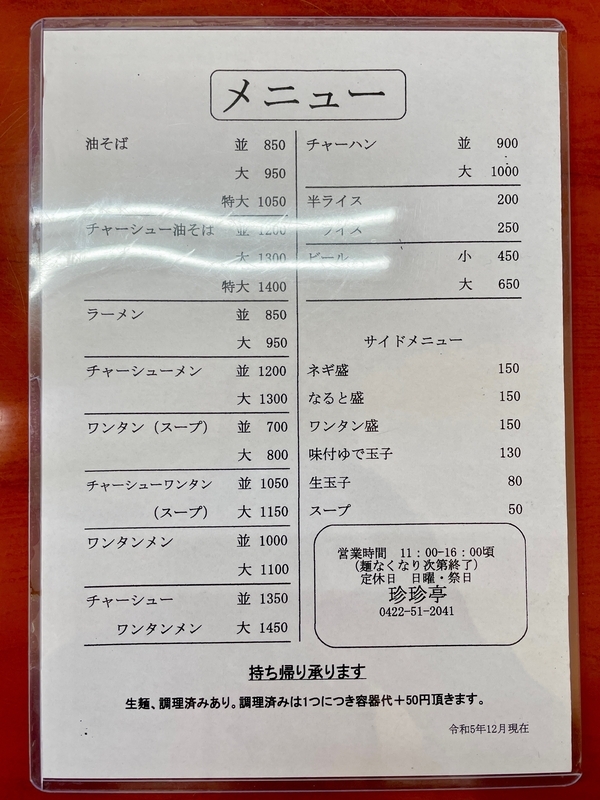 メニュー
油そば 並 850
大 950
特大 1050
チャーシュー油そば 並 1200
大 1300
特大 1400
ラーメン 並 850
大 950
チャーシューメン 並 1200
大 1300
ワンタン（スープ） 並 700
大 800
チャーシューワンタン 並 1050
（スープ） 大 1150
ワンタンメン 並 1000
大 1100
チャーシュー 並 1350
ワンタンメン 大 1450
チャーハン 並 900
大 1000
半ライス 200
ライス 250
ビール 小 450
大 650
サイドメニュー
ネギ盛 150
なると盛 150
ワンタン盛 150
味付ゆで玉子 130
生玉子 80
スープ 50
営業時間 11：00-16：00頃
（麺なくなり次第終了）
定休日 日曜・祭日
珍珍亭
0422-51-2041
持ち帰り承ります
生麺、調理済みあり。調理済みは1つにつき容器代＋50円頂きます。
令和5年12月現在